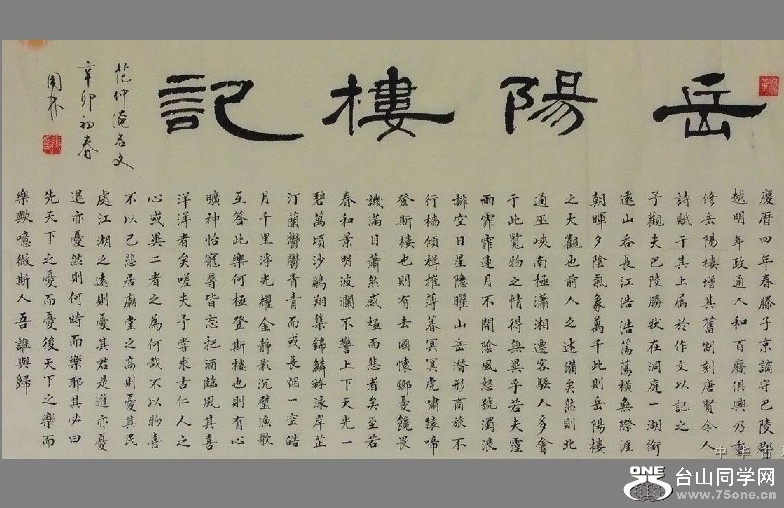 岳陽樓記
慶曆四年春滕子京謫守巴陵郡
越明年政通人和百廢俱興乃重
修岳陽樓增其舊制刻唐賢今人
詩賦于其上屬於作文以記之
予觀夫巴陵勝狀在洞庭一湖銜
遠山吞長江浩浩蕩蕩橫無際涯
朝暉夕陰氣象萬千此則岳陽樓
之大觀也前人之述備矣然則北
通巫峽南極瀟湘遷客騷人多會
于此覽物之情得無異乎若夫霪
雨霏霏連月不開陰風怒號濁浪
排空日星隱曜山岳潛形商旅不
行檣傾楫摧薄暮冥冥虎嘯猿啼
登斯樓也則有去國懷鄉憂讒畏
譏滿目蕭然感極而悲者矣至若
春和景明波瀾不驚上下天光一
碧萬頃沙鷗翔集錦鱗游泳岸芷
汀蘭鬱鬱青青而或長烟一空皓
月千里浮光耀金靜影沉璧漁歌
互答此樂何極登斯樓也則有心
曠神怡寵辱皆忘把酒臨風其喜
洋洋者矣嗟夫予嘗求古仁人之
心或異二者之為何哉不以物喜
不以己悲居廟堂之高則憂其民
處江湖之遠則憂其君是進亦憂
退亦憂然則何時而樂耶其必曰
先天下之憂而憂後天下之樂而
樂歟噫微斯人吾誰與歸
范仲淹名文
辛卯初春
ONE
台山同学网
www.75one.cn